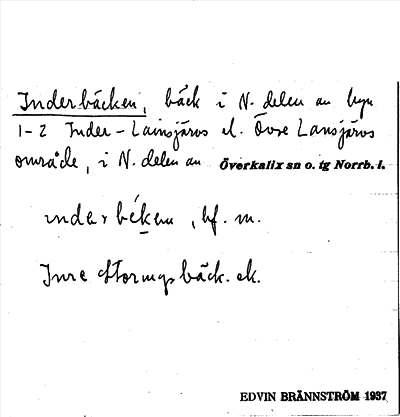 Inderbäcken, bäck i N. delen av byn
1-2 Inder-Lainsjärvs el. Övre Lansjärvs
område, i N. delen av Överkalix sn o. tg Norrb. l.
ındərbékəṇ, bf. m.
Inre Stormyrbäck. ek.
EDVIN BRÄNNSTRÖM 1937